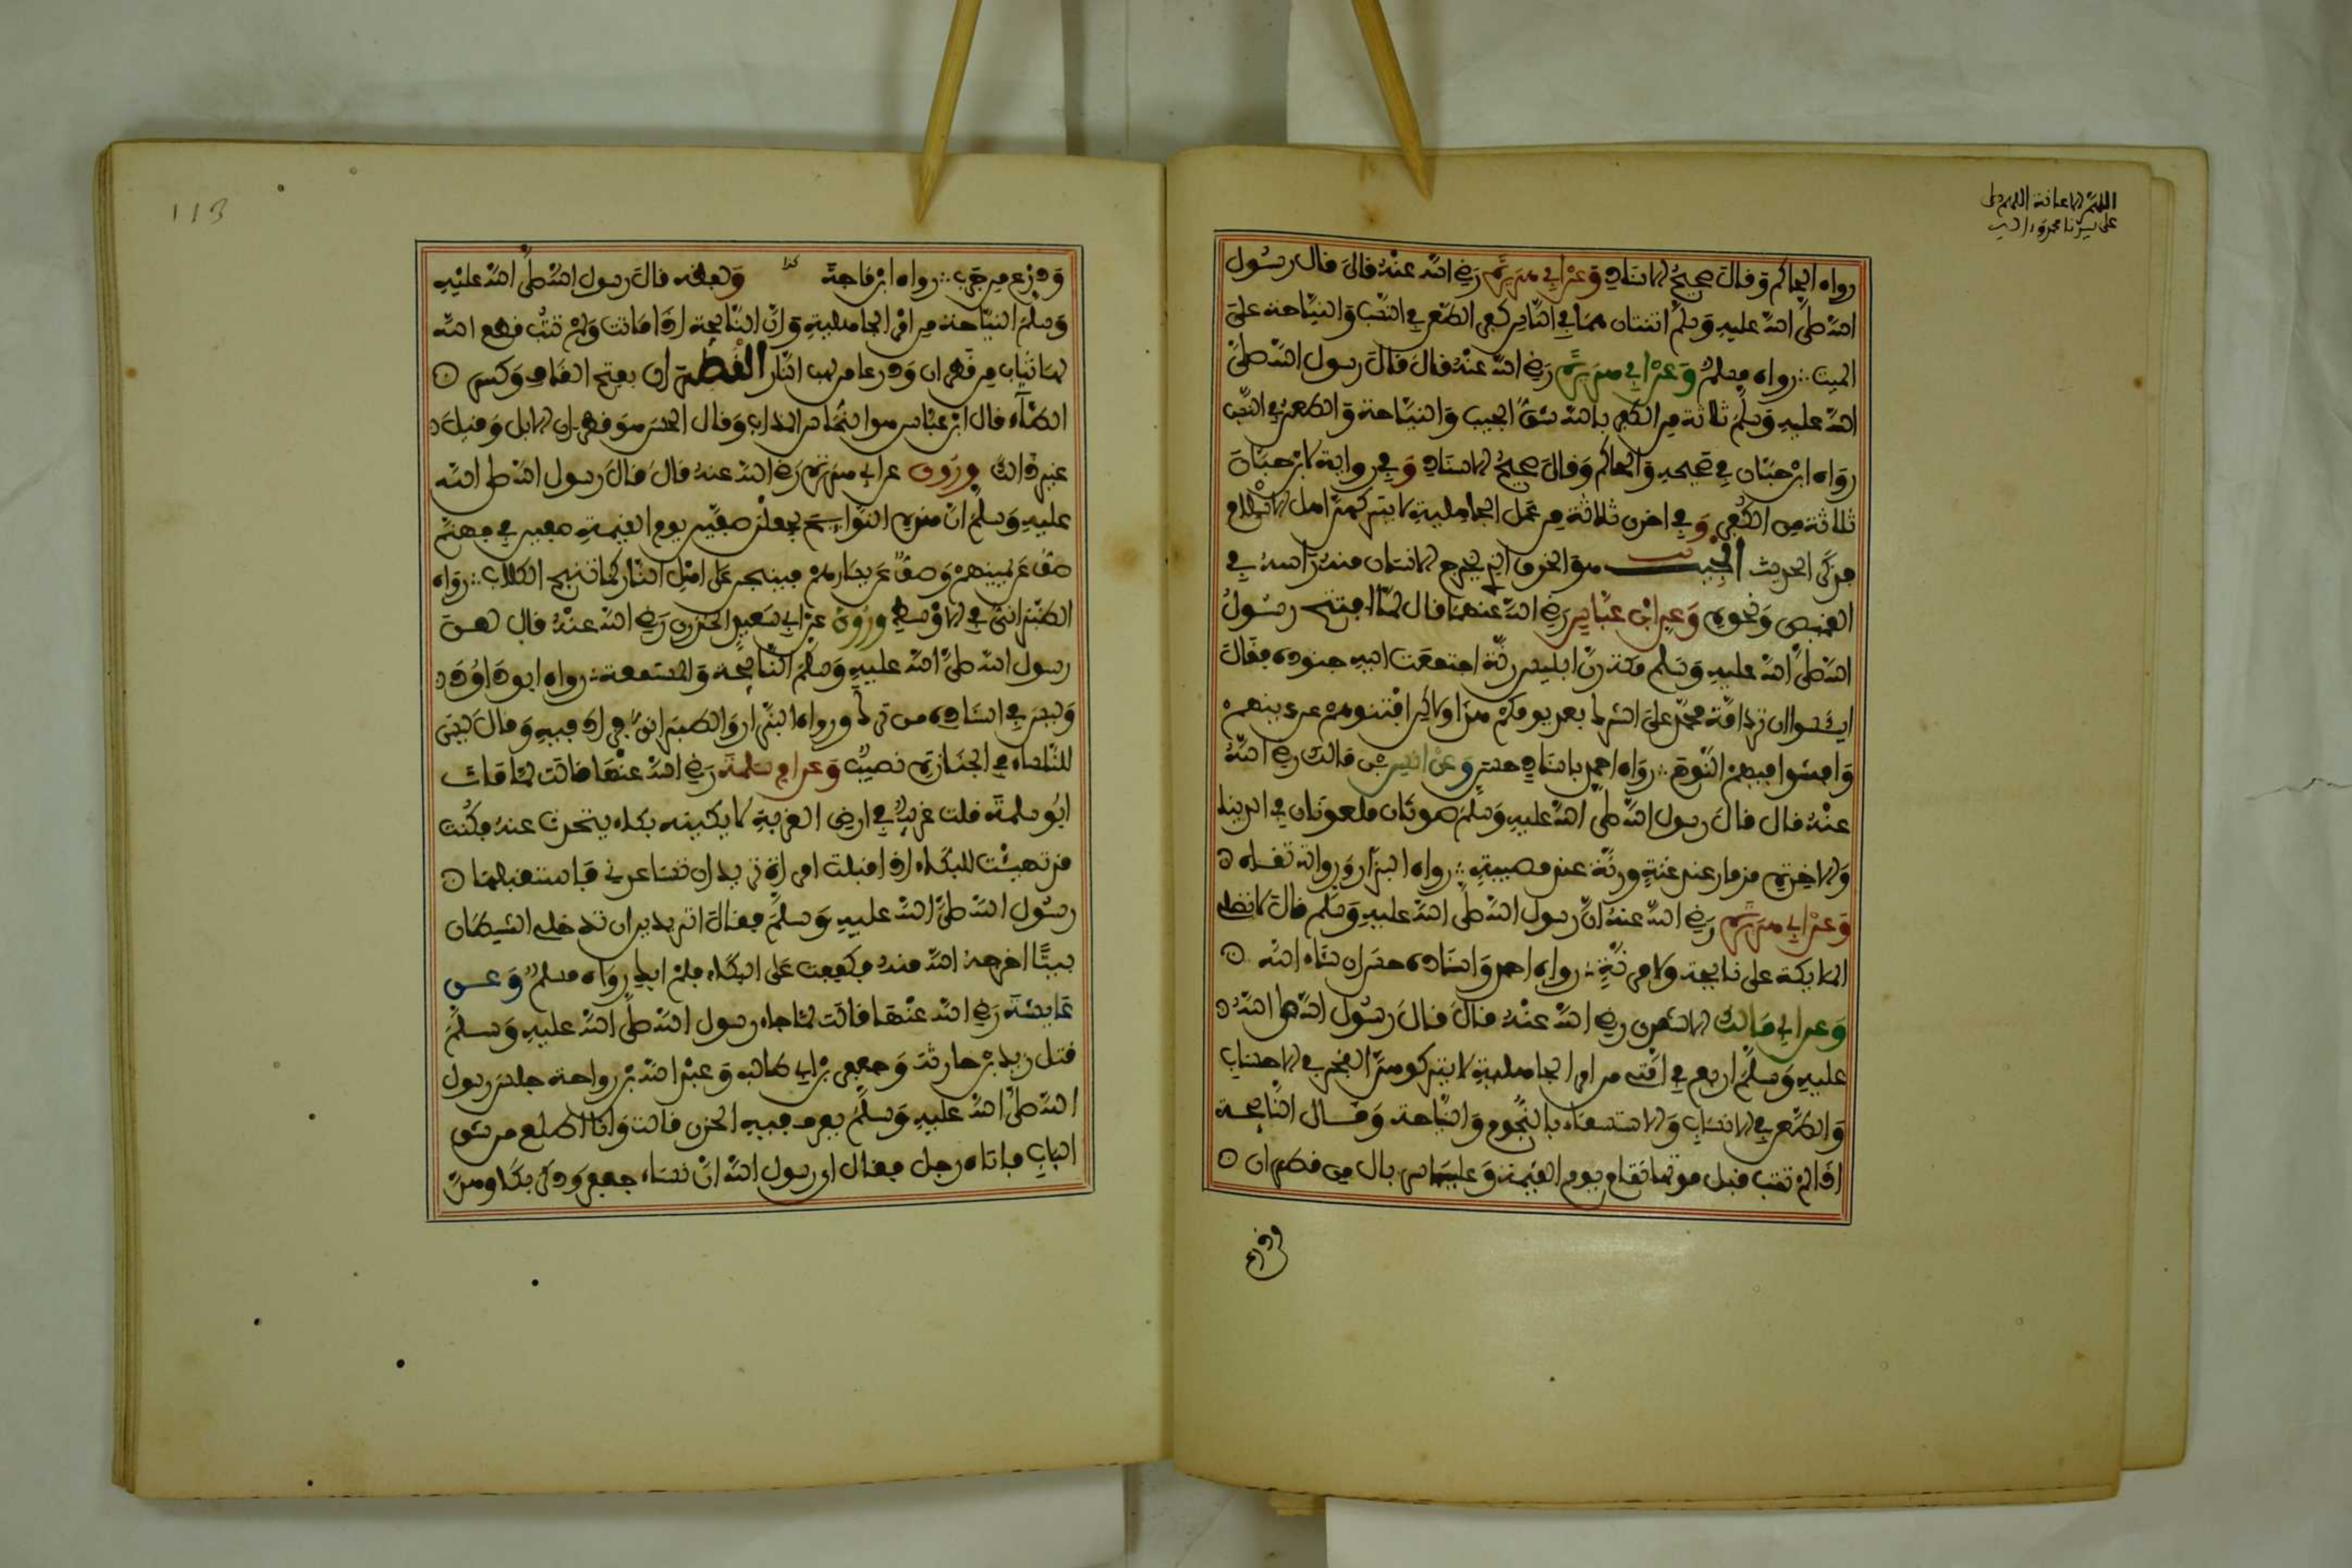 اللهم الاعانة اللهم صل
على سيدنا محمد وءاله
رواه الحاكم وقال صحيح الاسناد وعن ابي هريرة رضي الله عنه قال قال رسول
الله صلى الله عليه وسلم اثنتان هما في الناس كفر الطعن في النسب والنياحة على
الميت رواه مسلم وعن ابي هريرة رضي الله عنه قال قال رسول الله صلى
الله عليه وسلم ثلاثة من الكفر بالله شق الجيب والنياحة والطعن في النسب
رواه ابن حبان في صحيحه والحاكم وقال صحيح الاسناد وفي رواية لابن حبان
ثلاثة من الكفر وفي اخرى ثلاثة من عمل الجاهلية لا يتركهن اهل الاسلام
فذكر الحديث الجيب هو الخرق الذي يخرج الانسان منه راسه في
القميص ونحوه وعن ابن عباس رضي الله عنهما قال لما افتتح رسول
الله صلى الله عليه وسلم مكة رن ابليس رنة اجتمعت اليه جنوده فقال
ايئسوا ان ترد امة محمد على الشرك بعد يومكم هذا ولاكن افتنوهم في دينهم
وافشوا فيهم النوح رواه احمد باسناد حسن وعن انس بن مالك رضي الله
عنه قال قال رسول الله صلى الله عليه وسلم صوتان ملعونان في الدنيا
والاخرة مزمار عند نعمة ورنة عند مصيبة رواه البزار ورواته ثقات
وعن ابي هريرة رضي الله عنه ان رسول الله صلى الله عليه وسلم قال لا تصلي
الملائكة على نائحة ولا مرنة رواه احمد واسناده حسن ان شاء الله
وعن ابي مالك الاشعري رضي الله عنه قال قال رسول الله صلى الله
عليه وسلم اربع في امتي من امر الجاهلية لا يتركونهن الفخر في الاحساب
والطعن في الانساب والاستسقاء بالنجوم والنياحة وقال النائحة
اذا لم تتب قبل موتها تقام يوم القيمة وعليها سربال من قطران
ودرع
113
ودرع من جرب رواه ابن ماجة كذا ولفظه قال رسول الله صلى الله عليه
وسلم النياحة من امر الجاهلية وان النائحة اذا ماتت ولم تتب قطع الله
لها ثيابا من قطران ودرعا من لهب النار القطران بفتح القاف وكسر
الطاء قال ابن عباس هو النحاس المذاب وقال الحسن هو قطران الابل وقيل
غير ذالك وروي عن ابي هريرة رضي الله عنه قال قال رسول الله صلى الله
عليه وسلم ان هذه النوائح يجعلن صفين يوم القيمة صفين في جهنم
صف عن يمينهم وصف عن يسارهم فينبحن على اهل النار كما تنبح الكلاب رواه
الطبراني في الاوسط وروي عن ابي سعيد الخدري رضي الله عنه قال لعن
رسول الله صلى الله عليه وسلم النائحة والمستمعة رواه ابو داود
وليس في اسناده من ترك ورواه البزار والطبراني فزاد فيه وقال ليس
للنساء في الجنازة نصيب وعن ام سلمة رضي الله عنها قالت لما مات
ابو سلمة قلت غريب في ارض الغربة لابكينه بكاء يتحدث عنه فكنت
قد تهيئت للبكاء اذ اقبلت امراة تريد ان تساعدني فاستقبلها
رسول الله صلى الله عليه وسلم فقال اتريدين ان تدخلي الشيطان
بيتا اخرجه الله منه فكففت على البكاء فلم ابك رواه مسلم وعن
عايشة رضي الله عنها قالت لما جاء رسول الله صلى الله عليه وسلم
قتل زيد بن حارثة وجعفر بن ابي طالب وعبد الله بن رواحة جلس رسول
الله صلى الله عليه وسلم يعرف فيه الحزن قالت وانا اطلع من شق
الباب فاتاه رجل فقال اي رسول الله ان نساء جعفر وذكر بكاءهن